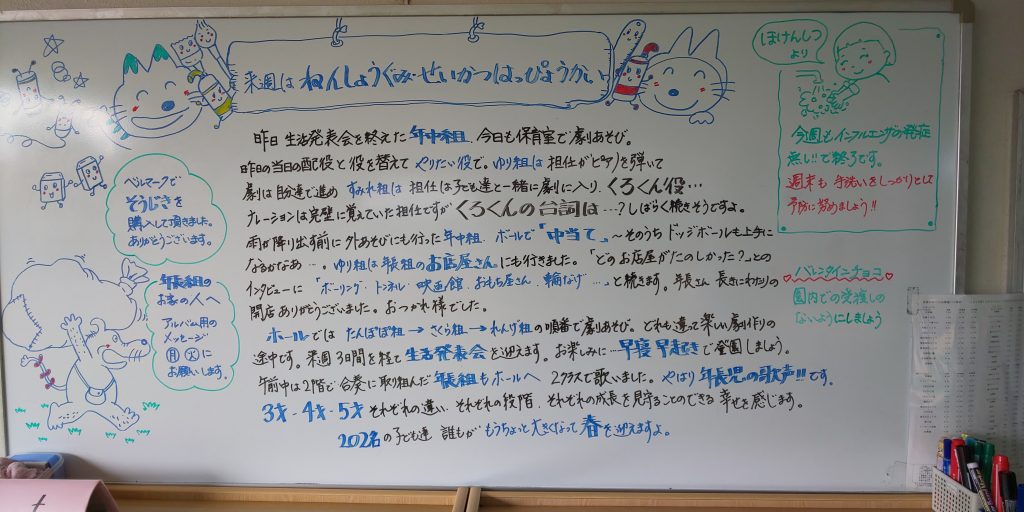 来週は ねんしょうぐみ せいかつはっぴょうかい
昨日 生活発表会を終えた 年中組、今日も保育室で劇あそび。
昨日の当日の配役と 役を替えて やりたい役で。ゆり組は 担任がピアノを弾いて
劇は自分達で進め すみれ組は 担任は子ども達と一緒に劇に入り、くろくん役…
ナレーションは完璧に覚えていた担任ですが くろくんの台詞は…? しばらく続きそうですよ。
雨が降り出す前に 外あそびにも行った 年中組、ボールで「中当て」～そのうち ドッジボールも上手に
なるかなあ…。ゆり組は年長組のお店屋さんにも行きました。「どのお店屋がたのしかった?」との
インタビューに「ボーリング、トンネル、映画館、おもち屋さん、輪なげ…」と続きます。年長さん 長きにわたりの
開店 ありがとうございました。おつかれ様でした。
ホールでは たんぽぽ組→さくら組→れんげ組の順番で劇あそび。どれも違って楽しい劇作りの
途中です。来週 3日間を経て 生活発表会を迎えます。お楽しみに…早寝早起きで登園しましょう。
午前中は2階で合奏に取り組んだ 年長組もホールへ 2クラスで歌いました。やはり 年長児の歌声!!です。
3才・4才・5才 それぞれの違い、それぞれの段階、それぞれの成長を見守ることのできる 幸せを感じます。
202名の子ども達 誰もが もうちょっと 大きくなって 春を迎えますよ。
ベルマークで
そうじきを
購入して頂きました。
ありがとうございます。
年長組の
お家の人へ
アルバム用の
メッセージ
月 火 に
お願いします。
ほけんしつ
より
今週も インフルエンザの発症
無し!!で終了です。
週末も 手洗いをしっかりとして
予防に努めましょう!!
バレンタインチョコ
園内での受渡しの
ないようにしましょう